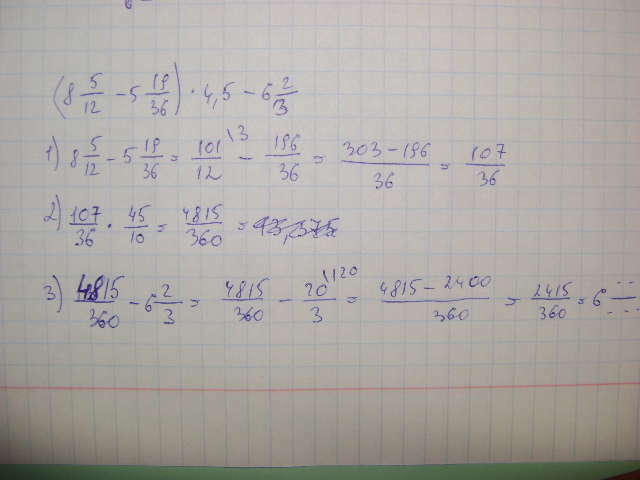 (8 5/12 - 5 19/36) · 4,5 - 6 2/3
1) 8 5/12 - 5 19/36 = 101/12 \3 - 196/36 = (303 - 196)/36 = 107/36
2) 107/36 · 45/10 = 4815/360 =
3) 4815/360 - 6 2/3 = 4815/360 - 20/3 \120 = (4815 - 2400)/360 = 2415/360 = 6